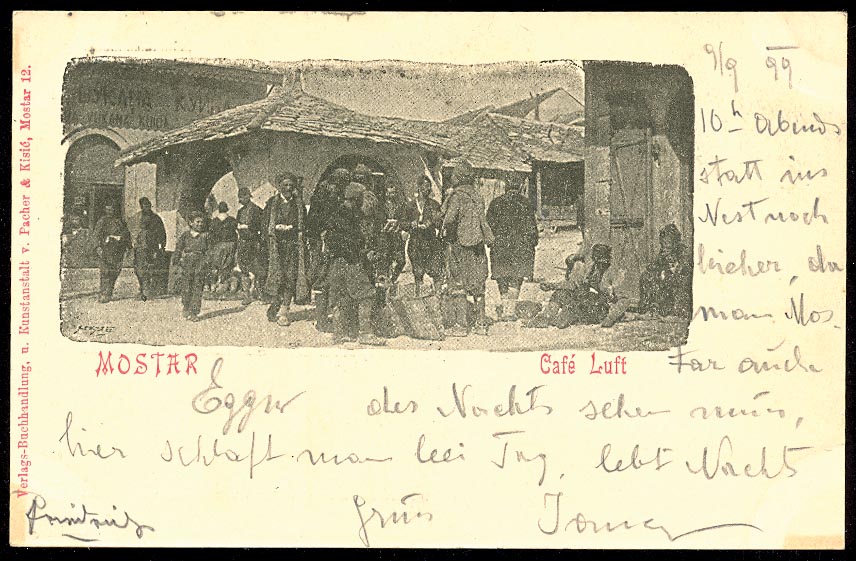 9/9 99
10h Abends
statt ins
Nest noch
hieher, da
man Mos-
tar auch
des Nachts sehen muss,
hier schläft man bei Tag, lebt Nachts
Gruss
MOSTAR
Café Luft
Verlags-Buchhandlung, u. Kunstanstalt v. Pacher & Kisić, Mostar 12.